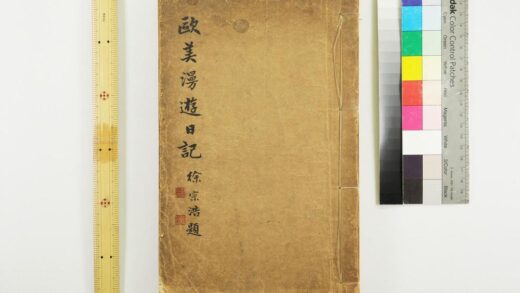 歐美漫遊日記
徐宗浩題
Kodak
Color Control Patches
Cyan
Green
Yellow
Red
Magenta
White
3/Color
Black